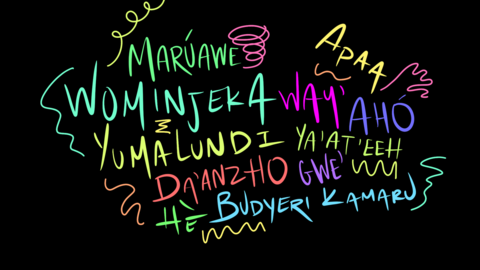 MARÚAWE
APAA
WOMINJEKA WAY' AHÓ
YUMALUNDI YA'AT'EEH
DA'ANZHO GWE'
HÈ BUDYERI KAMARU